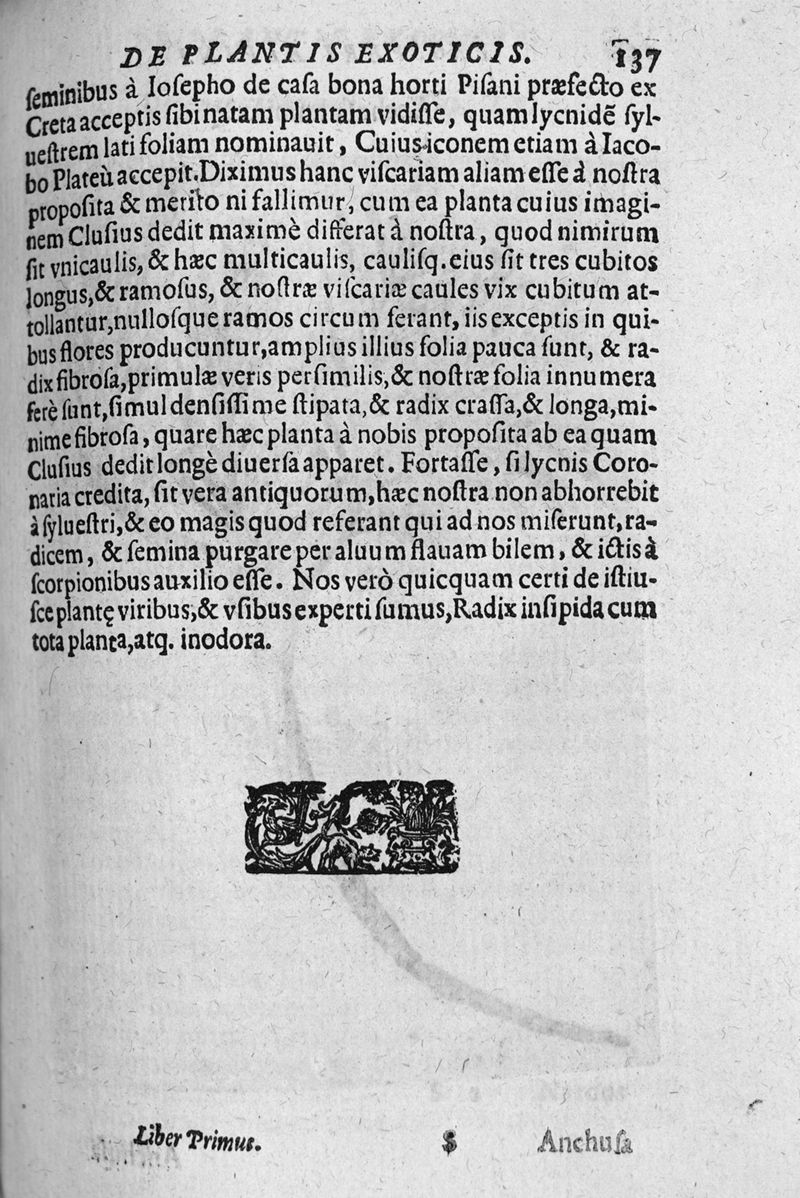 DE PLANTIS EXOTICIS. 137
ſeminibus à Ioſepho de caſa bona horti Piſani præfecto ex
Creta acceptis ſibi natam plantam vidiſſe, quam lycnidē ſyl-
ueſtrem lati foliam nominauit, Cuius iconem etiam à Iaco-
bo Plateù accepit. Diximus hanc viſcariam aliam eſſe à noſtra
propoſita & merito ni fallimur, cum ea planta cuius imagi-
nem Cluſius dedit maximè differat à noſtra, quod nimirum
ſit vnicaulis, & hæc multicaulis, cauliſq. eius ſit tres cubitos
longus, & ramoſus, & noſtræ viſcariæ caules vix cubitum at-
tollantur, nulloſque ramos circum ferant, iis exceptis in qui-
bus flores producuntur, amplius illius folia pauca ſunt, & ra-
dix fibroſa, primulæ veris perſimilis, & noſtræ folia innumera
ferè ſunt, ſimul denſiſſime ſtipata, & radix craſſa, & longa, mi-
nime fibroſa, quare hæc planta à nobis propoſita ab ea quam
Cluſius dedit longè diuerſa apparet. Fortaſſe, ſi lycnis Coro-
naria credita, ſit vera antiquorum, hæc noſtra non abhorrebit
à ſylueſtri, & eo magis quod referant qui ad nos miſerunt, ra-
dicem, & ſemina purgare per aluum flauam bilem, & ictis à
ſcorpionibus auxilio eſſe. Nos verò quicquam certi de iſtiu-
ſce plantę viribus, & vſibus experti ſumus, Radix inſipida cum
tota planta, atq. inodora.
Liber Primus. S Anchuſa